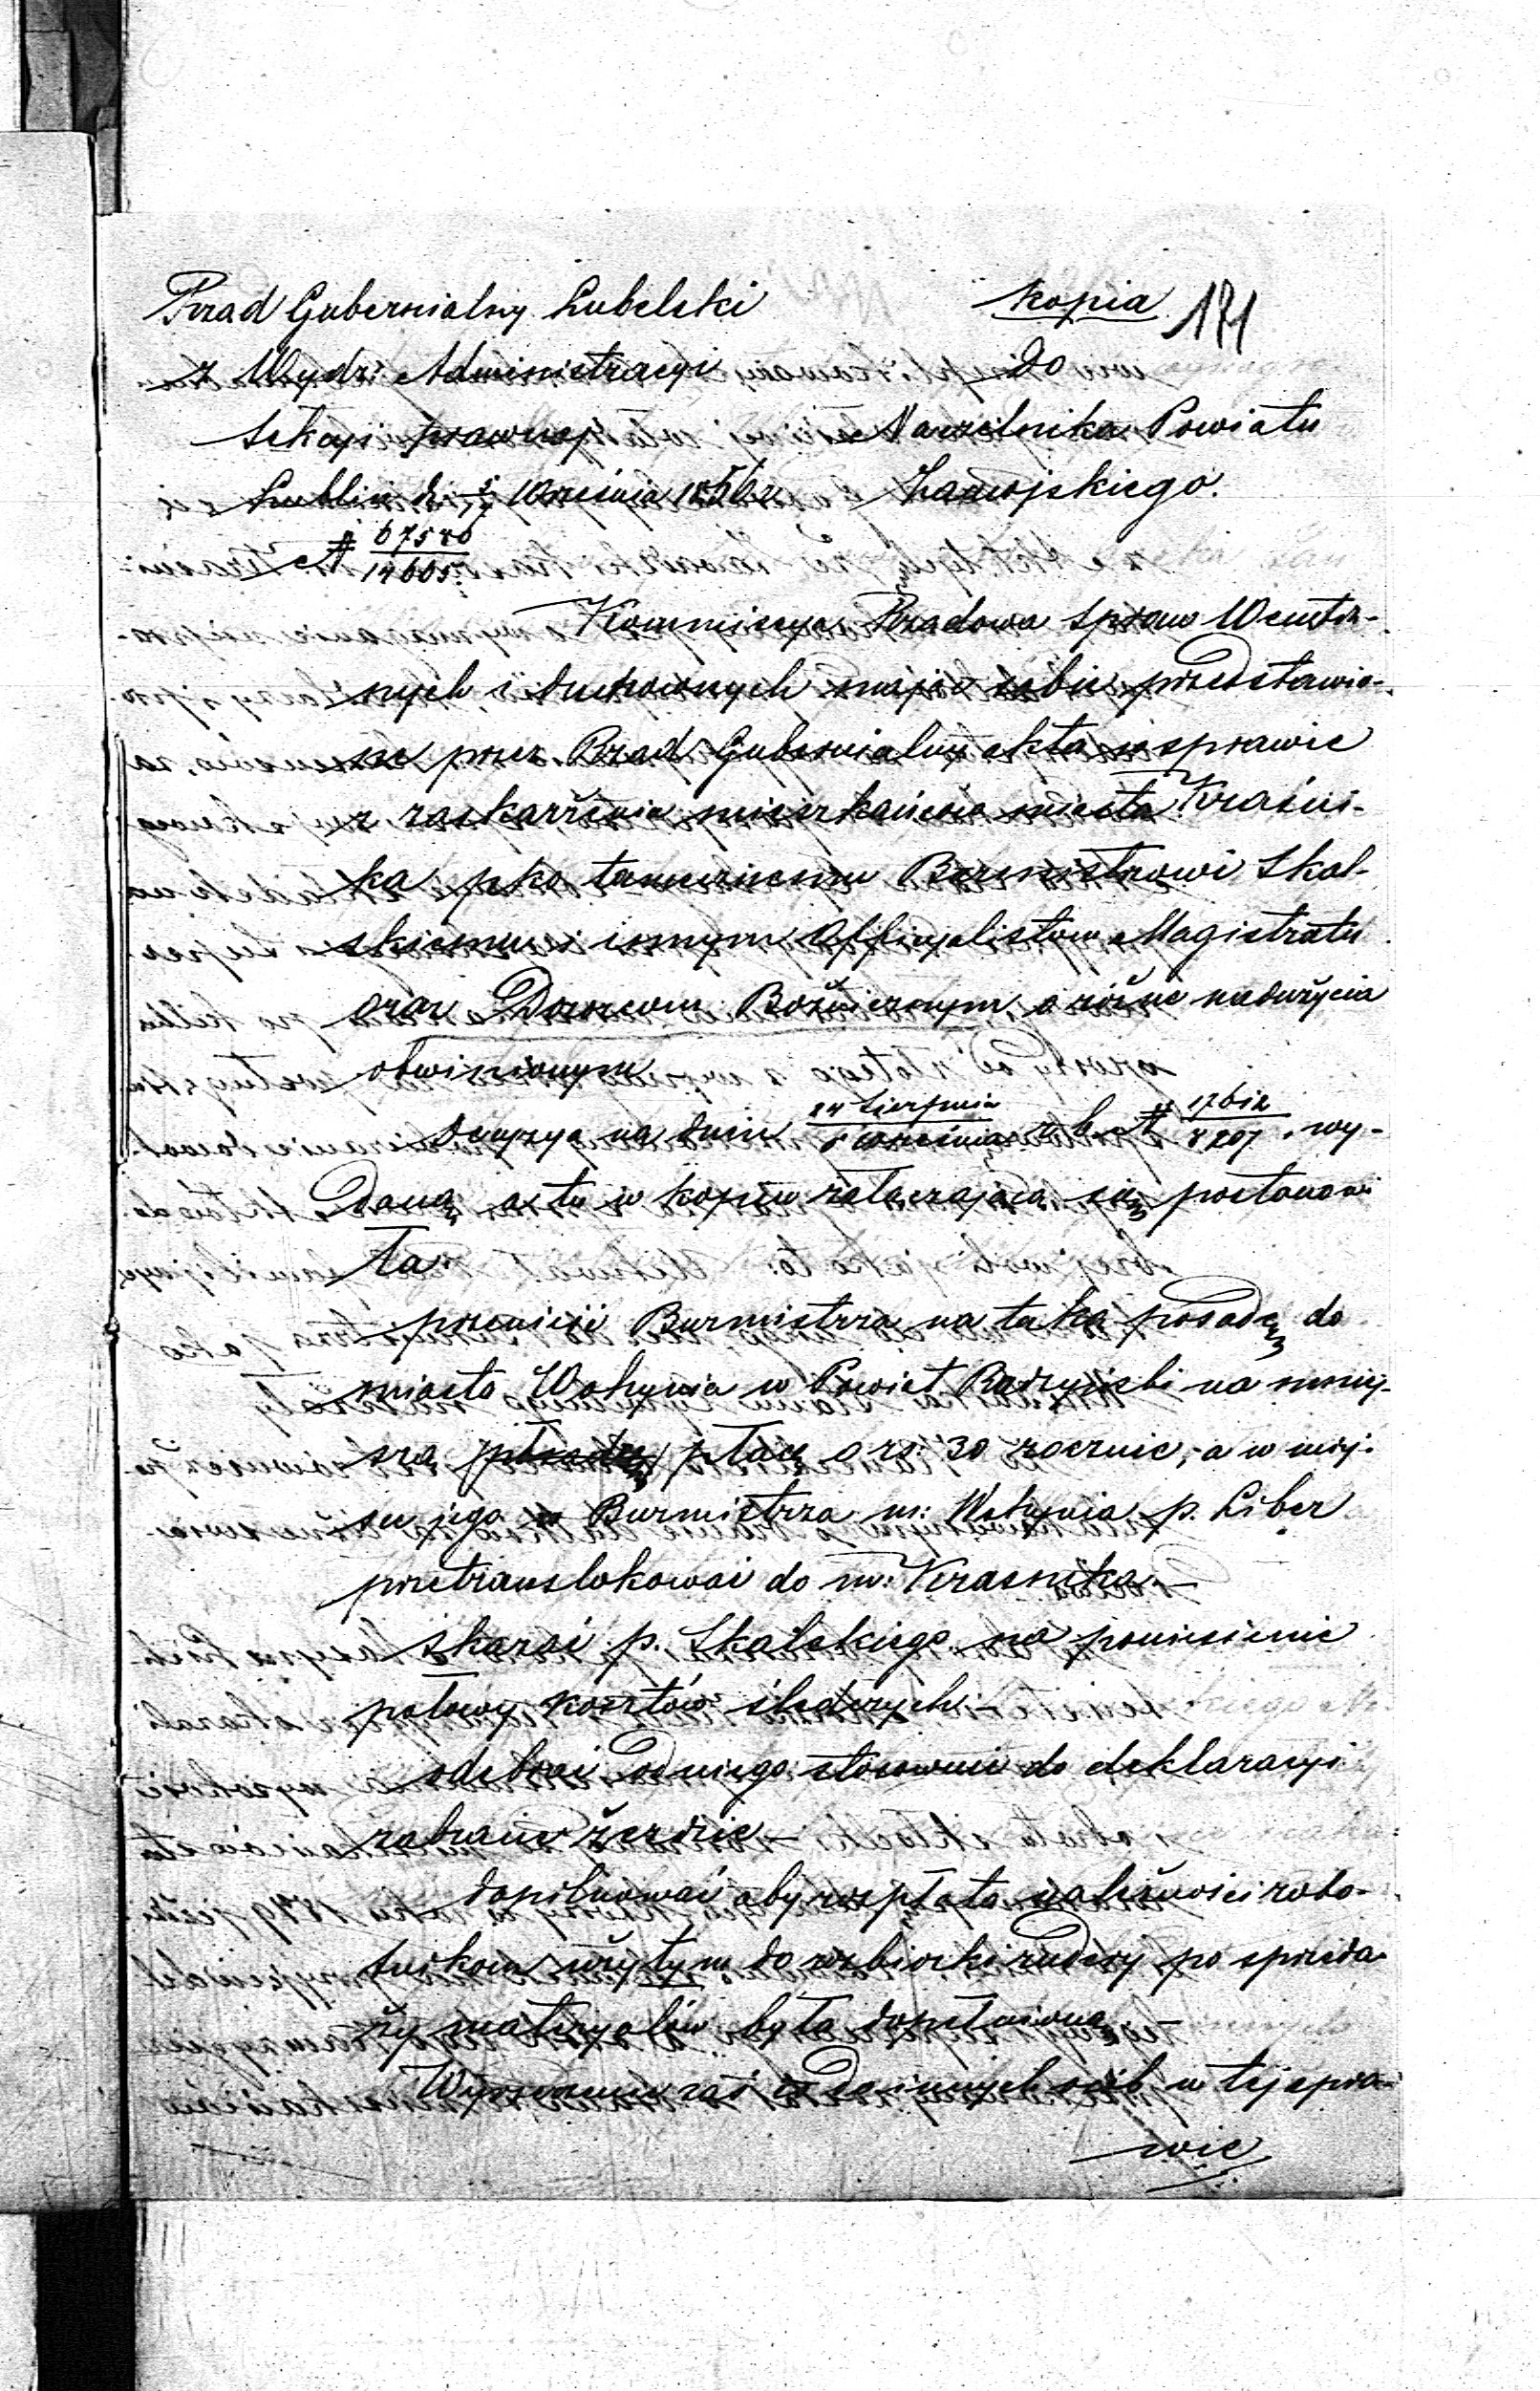 Rząd Gubernialny Lubelski
kopia 171
z Wydz: Administracyi
Sekcyi prawnej
Lublin d. 5/17 Września 1856 r.
№ 67580/14665.
Do
Naczelnika Powiatu
Zamojskiego.
Kommissya Rządowa Spraw Wewtrz-
nych i duchownych mając sobie przedstawio-
ne przez Rząd Gubernialny akta w sprawie
z zaskarżenia mieszkańców miasta Kraśni-
ka pko tamecznemu Burmistrowi Skal-
skiemu i innym Officyalistom Magistratu
oraz Dozorcom Bożnicznym o różne nadużycia
obwinionym
decyzyą na dniu 24 Sierpnia/5 Września r. b. № 17612/8207 wy-
daną a tu w kopiu załączającą się postanowi
ła:
przenieść Burmistrza na taką posadę do
miasta Wohynia w Powiat Radzyński na mniej-
szą płacę o rs: 30 rocznie, a w miej-
scu jego Burmistrza m: Wohynia p. Liber
przetranslokować do m: Krasnika.—
skazać p. Skalskiego na poniesienie
połowy kosztów śledczych.—
odebrać od niego stosownie do deklaracyi
zabrane żerdzie—
dopilnować aby rozpłata należności robo-
tnikom użytym do rozbiorki rudery po sprzeda-
ży materyałów była dopełnioną
zaś co do innych osób w tej spra-
wie